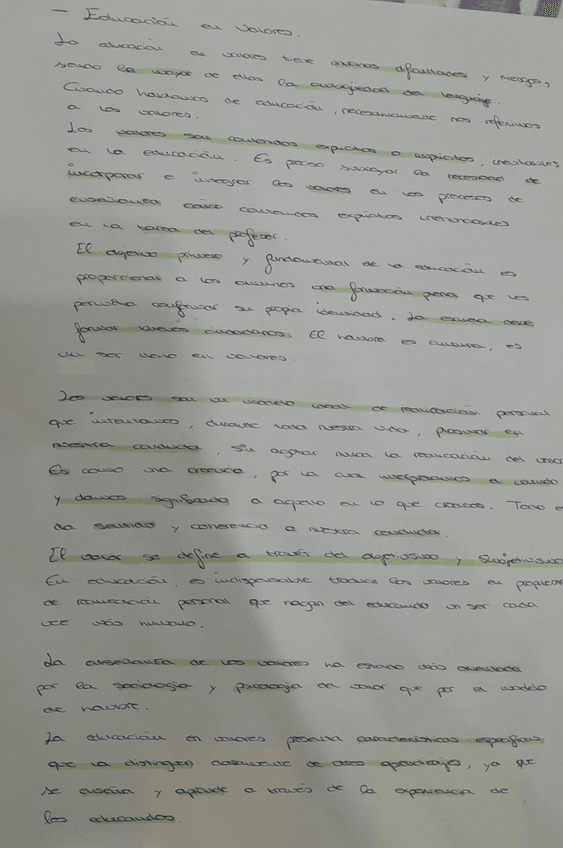 - Educación en valores.
La educación en valores tiene muchas dificultades y riesgos,
siendo la mayor de ellas la ambigüedad del lenguaje.
Cuando hablamos de educación, necesariamente nos referimos
a los valores.
Los valores son contenidos explícitos o implícitos, inevitables
en la educación. Es preciso subrayar la necesidad de
incorporar e integrar los valores en los procesos de
enseñanza como contenidos explícitos irrenunciables
en la tarea del profesor.
El objetivo primero y fundamental de la educación es
proporcionar a los alumnos una formación plena que les
permita conformar su propia identidad. La escuela debe
formar buenos ciudadanos. El hombre es cultura, es
un ser lleno en valores.
Los valores son un modelo ideal de realización personal
que intentamos, durante toda nuestra vida, plasmar en
nuestra conducta, sin agotar nunca la realización del
Es como una creencia, por la cual interpretamos el mundo
y damos significado a aquello en lo que creemos. Todo
da sentido y coherencia a nuestra conducta.
El valor se define a través del objetivismo y subjetivismo
En educación, es indispensable traducir los valores en
de realización personal que hagan del educando un ser cada
vez más humano.
La enseñanza de los valores ha estado más orientada
por la sociología y psicología del valor que por el modelo
de hombre.
La educación en valores presenta características específicas
que la distinguen claramente de otros aprendizajes, ya que
se enseña y aprende a través de la experiencia de
los educandos.